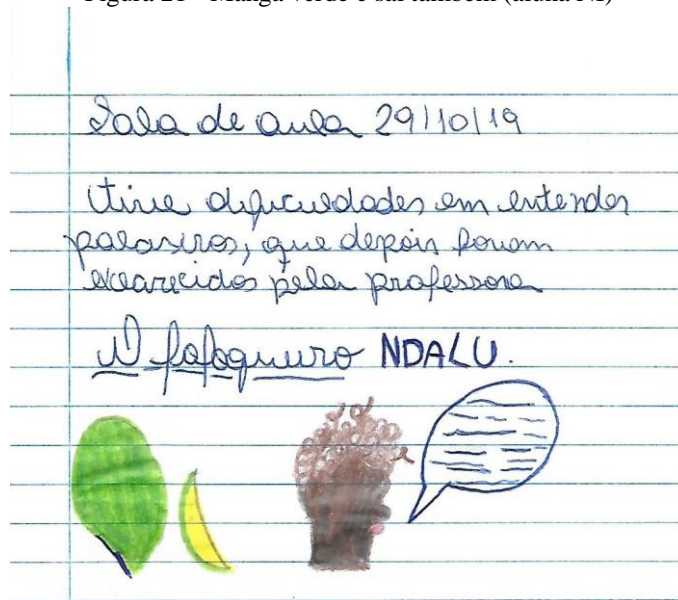 Figura 21 - Manga verde e sal também (aluna NI)
Sala de aula 29/10/19
Tive dificuldades em entender
palavras, que depois foram
pela professora
O fofoqueiro NDALU.